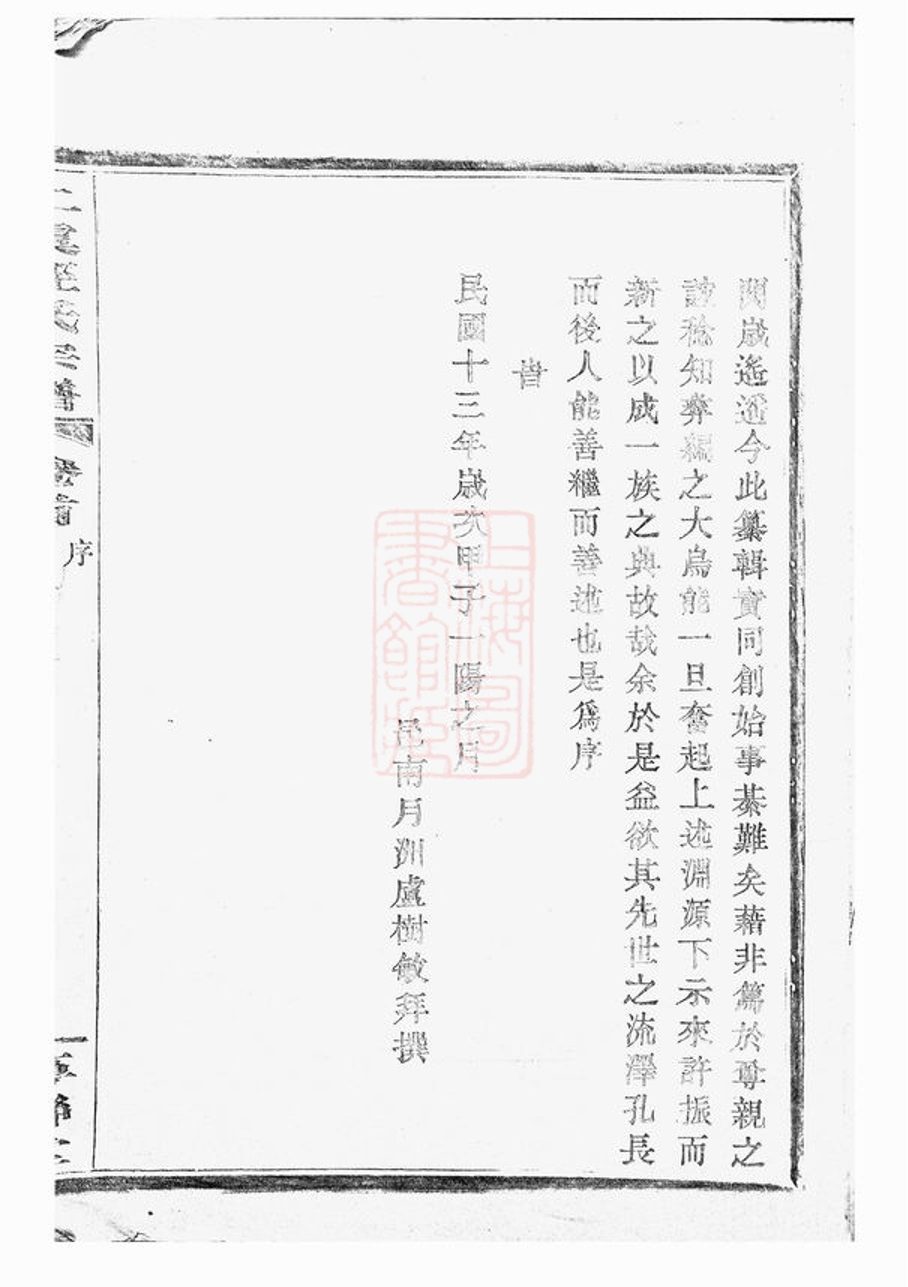 閱歲遙遙今此纂輯實同創始事綦難矣藉非篤於尊親之
誼稔知彝編之大烏能一旦奮起上述淵源下示來許振而
新之以成一族之典故哉余於是益欲其先世之流澤孔長
而後人能善繼而善述也是爲序
旹
民國十三年歲次甲子一陽之月
邑南月洲盧樹敏拜撰
氏宗譜
卷首
序
上海圖書館藏